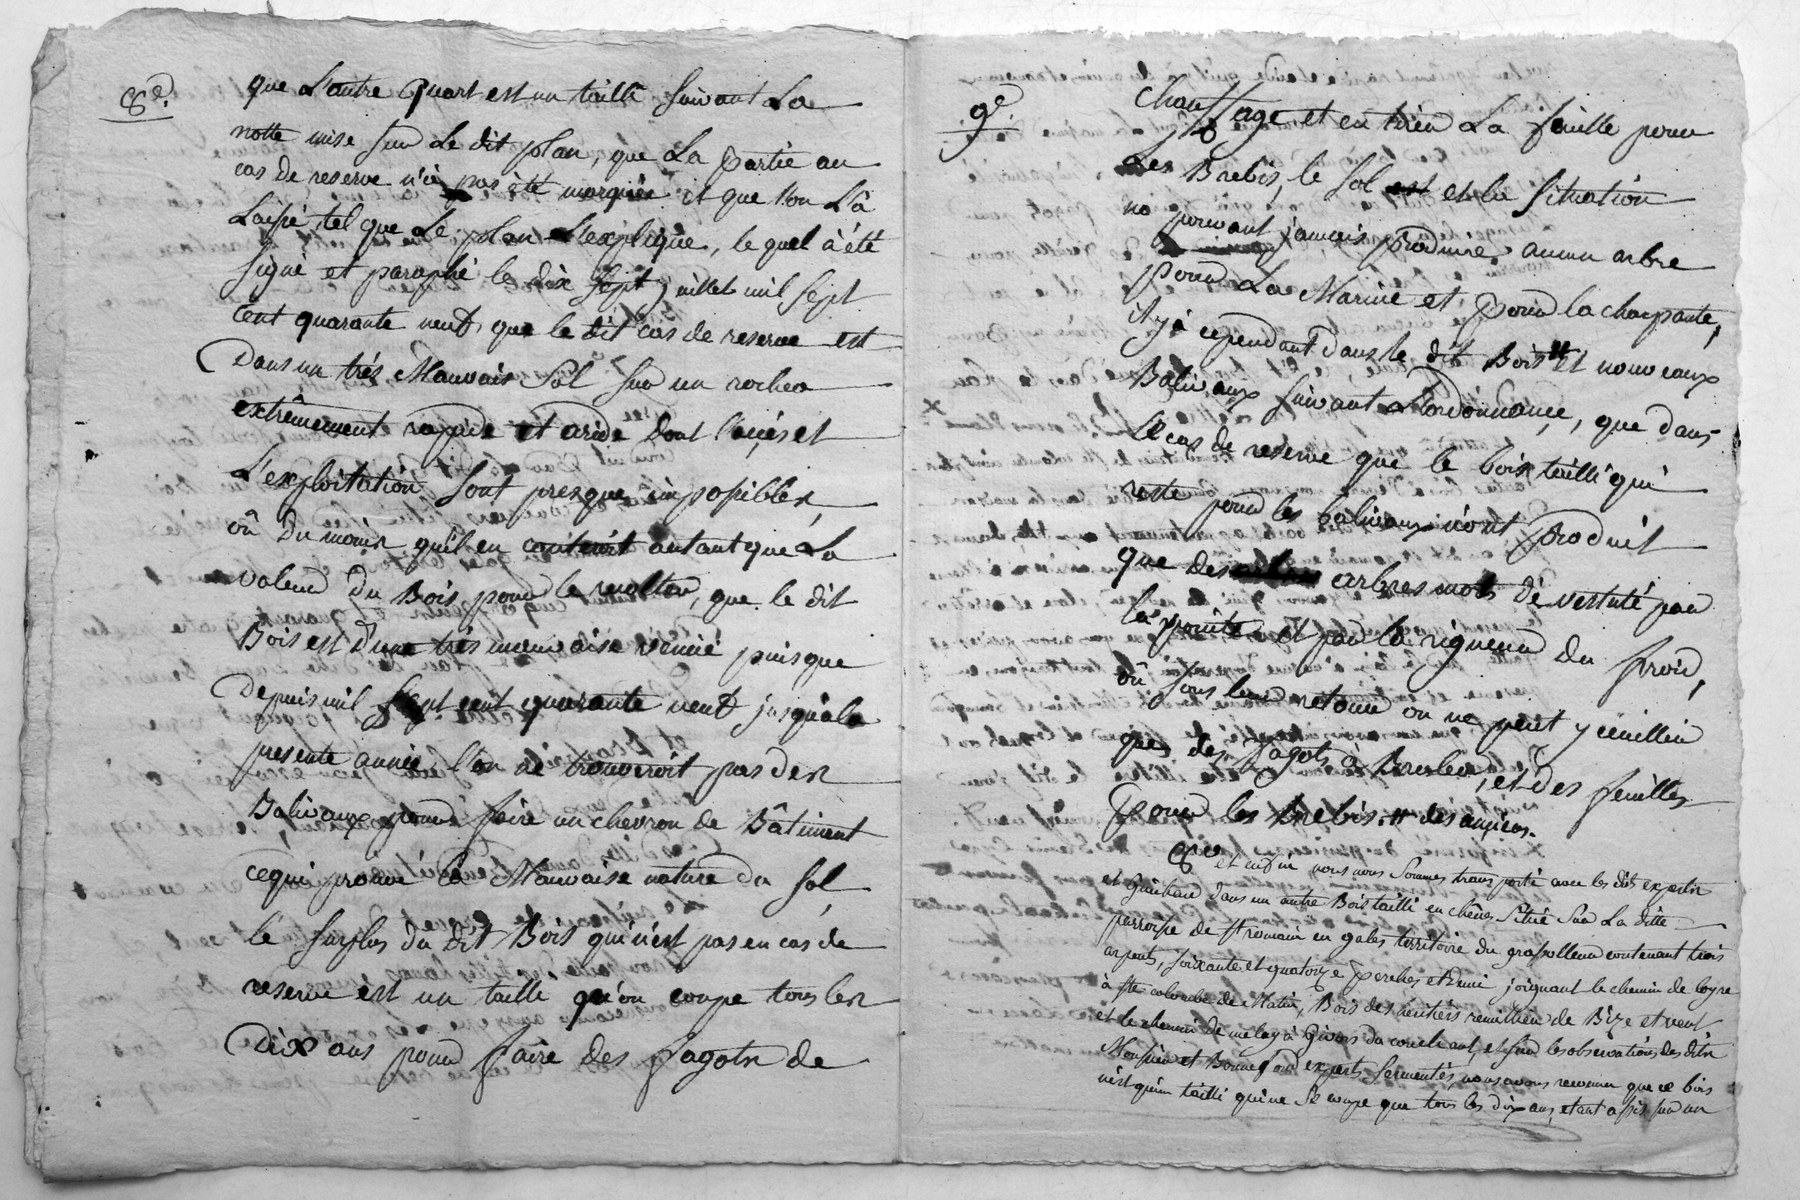 8e.
que L'autre quart est un tailli suivant La
notte mise sur Le dit plan, que La partie au
cas de reserve n'à pas été marquée et que l'on L'à
Laissé tel que Le plan L'explique, le quel à été
signé et paraphé le dix sept juillet mil sept
Cent quarante neuf, que le dit cas de reserve est
Dans un trés Mauvais Sol sur un rocher
extrêmement rapide et aride Dont l'accés et
L'exploitation sont presque impossibles,
oû Du moins qu'il en couteroit autant que La
valeur du Bois pour le recolter, que le dit
Bois est d'une trés mauvaise venüe puisque
Depuis mil sept cent quarante neuf jusqu'à la
presente année l'on ne trouveroit pas des
Balivaux pour faire un chevron de Bâtiment
cequi prouve la Mauvaise nature du Sol,
le surplus du dit Bois qui n'est pas en cas de
reserve est un tailli qu'on coupe tous les
Dix ans pour faire des fagots de
9e.
chauffage et en tirer La feuille pour
Les Brebis, le sol est et la situation
ne pouvant jamais produire aucun arbre
pour La Marine et pour la charpante,
il y à cependant dans le dit Bois # et nouveaux
Balivaux suivant L'ordonnance, que dans
Le cas de reserve que le bois tailli qui
reste pour les balivaux n'ont produit
que des arbres morts dévertuté par
la pointe et par la rigueur du froid,
oû sous leur retour on ne peut y ceuillir
ques des fagots à Bruler, et des feuilles
pour les Brebis. # des anciens.
8e et enfin nous nous sommes transporté avec les dits experts
et Guichard dans un autre Bois tailli en chênes situé sur La ditte
parroisse de st romain en gales territoire du grapolleur contenant trois
arpents, soixante et quatorze perches et demie joignant le chemin de loyre
à ste colombe de Matin, Bois des heritiers remillieu de Bize et vent,
et le chemin de melay à Givors du couchant, et sur les observations des dits
Monsieur et Bonnefond experts sermentés, nous avons reconnu que ce bois
n'est qu'un tailli qui ne se coupe que tous les dix ans, etant assis sur un